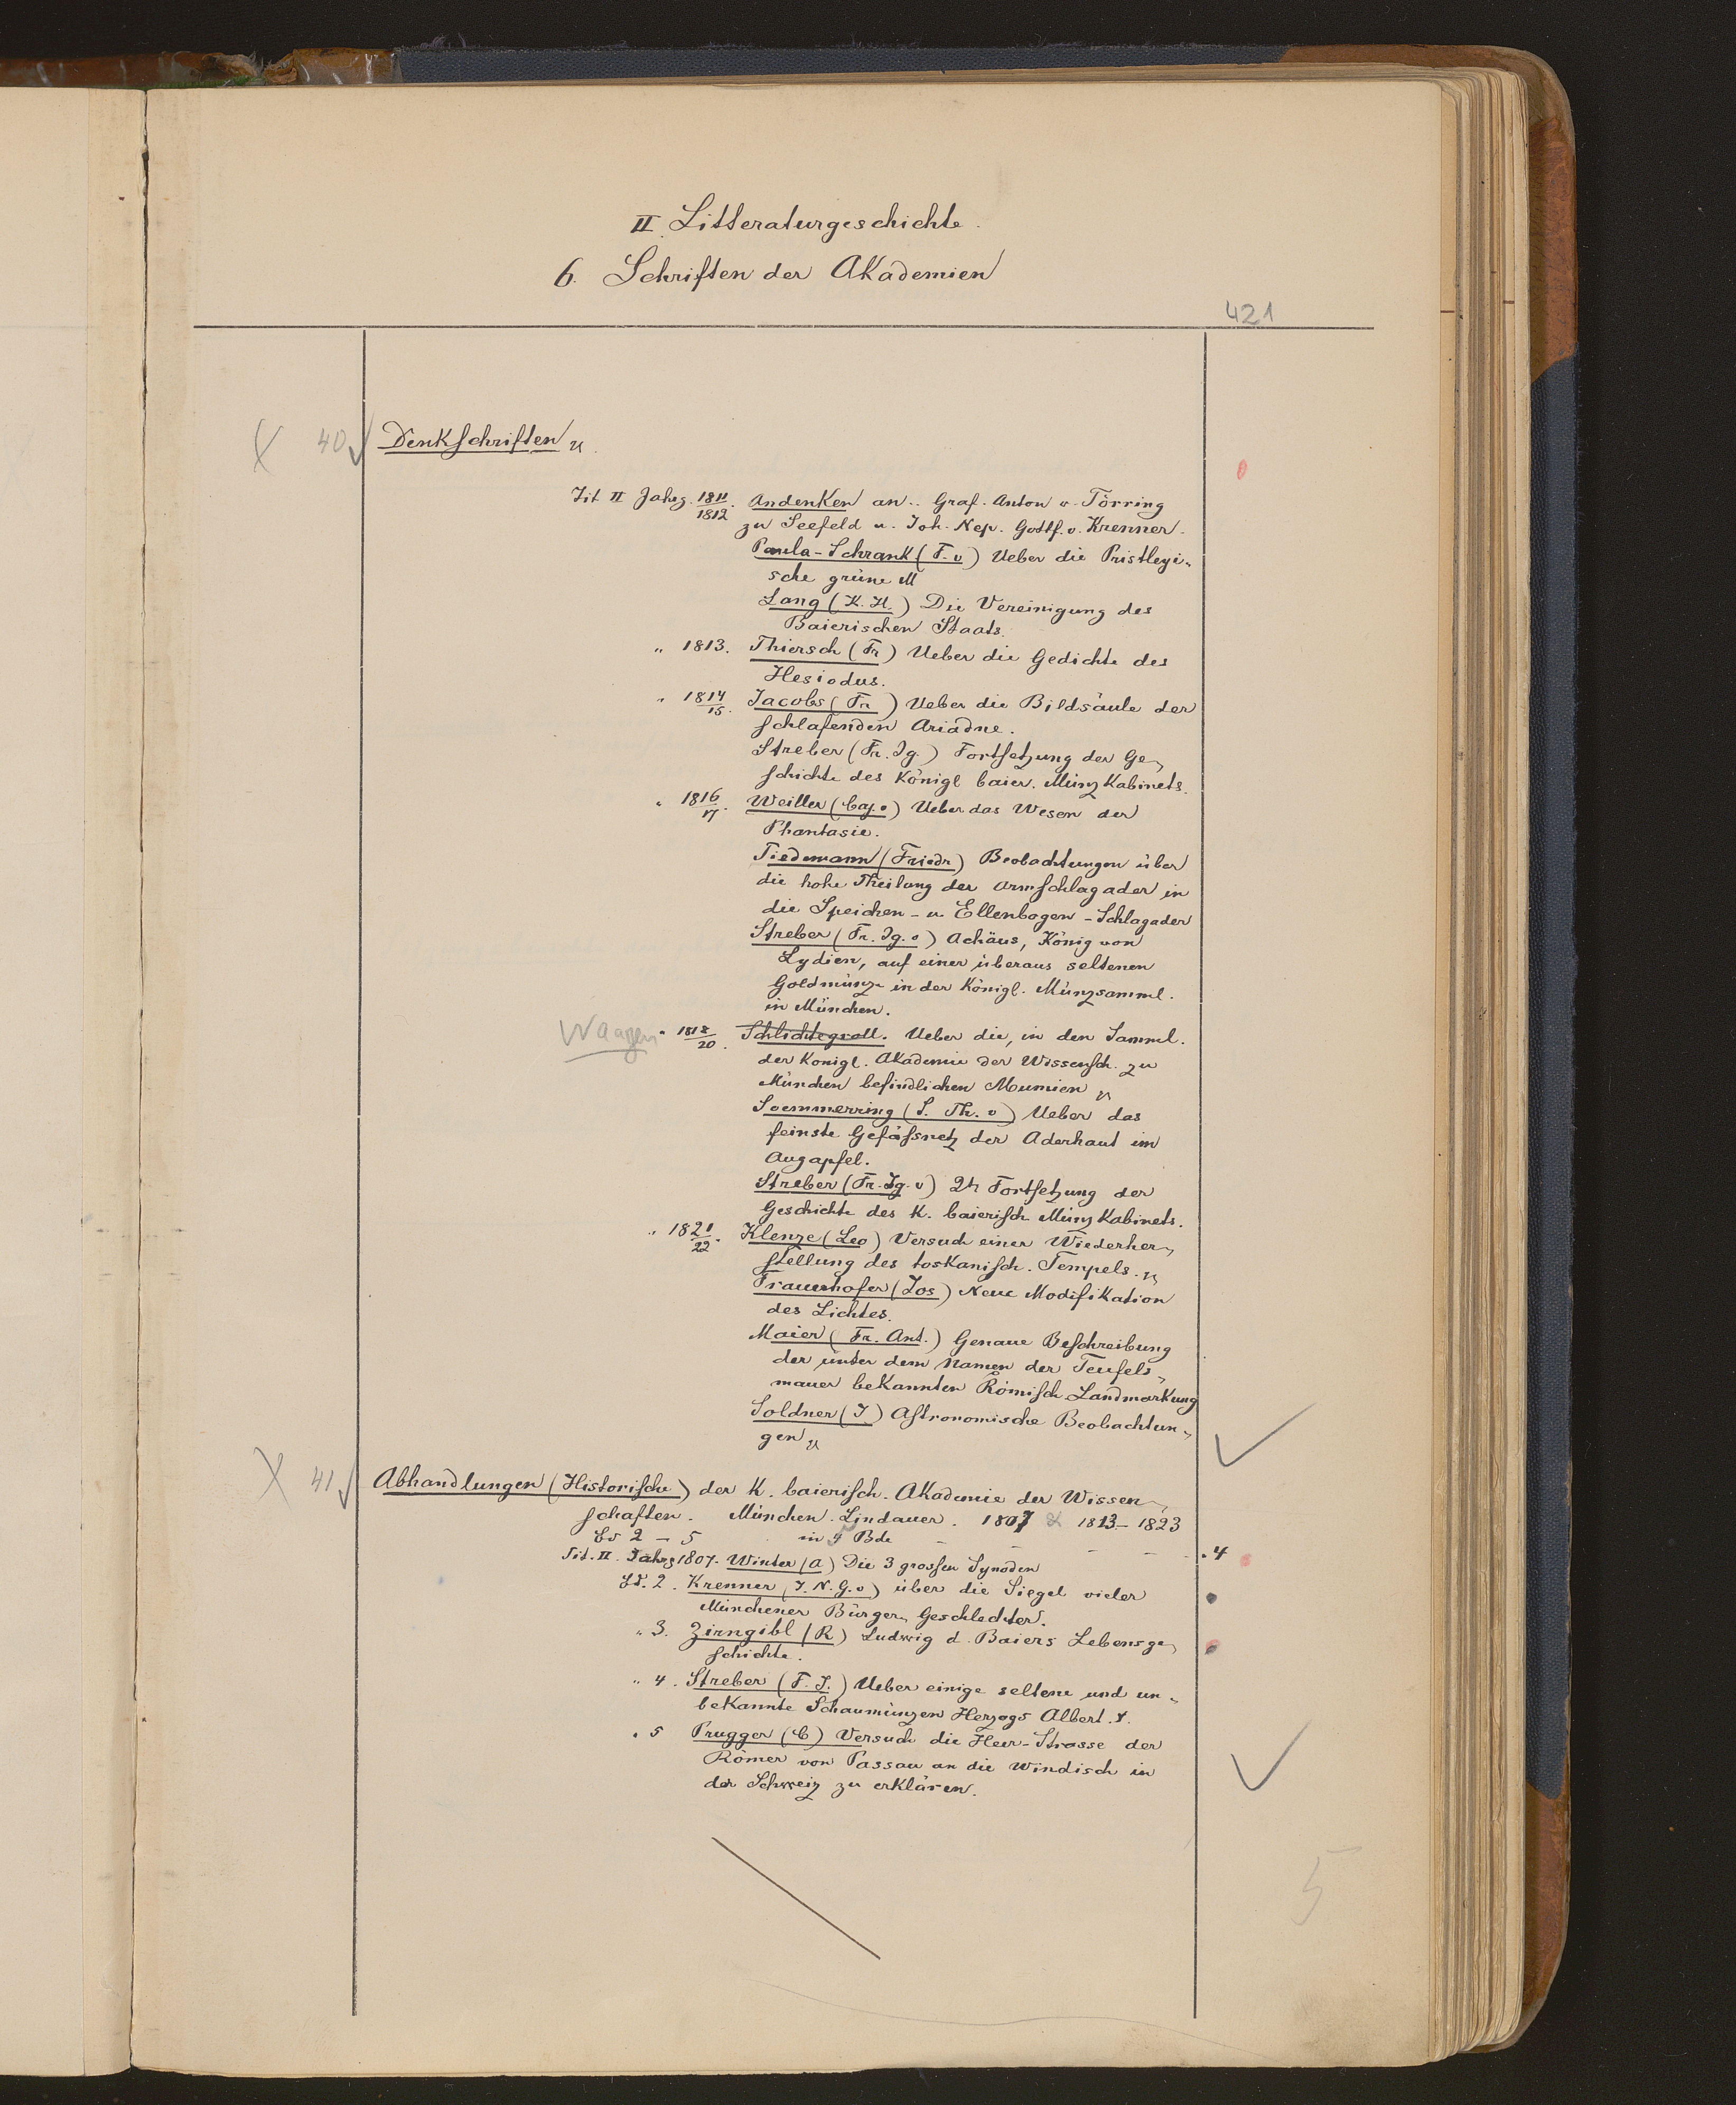 II. Litteraturgeschichte.
6. Schriften der Akademien
421
X 40 Denkschriften
Tit II Jahrg. 1811/1812. Andenken an.. Graf. Anton v. Törring
zu Seefeld u. Joh. Nep. Gottf. v. Krenner.
Paula-Schrank (F. v) Ueber die Pristleyi-
sche grüne M
Lang (K. H.) Die Vereinigung des
Baierischen Staats.
„ 1813. Thiersch (Fr) Ueber die Gedichte des
Hesiodus.
„ 1814/15. Jacobs (Fr) Ueber die Bildsäule der
schlafenden Ariadne.
Streber (Fr. Ig.) Fortsetzung der Ge-
schichte des Königl baier. Münz Kabinets.
„ 1816/17. Weiller (Caj. v) Ueber das Wesen der
Phantasie.
Tiedemann (Friedr) Beobachtungen über
die hohe Theilung der Armschlagader in
die Speichen- u Ellenbogen-Schlagader
Streber (Fr. Ig. v) Achäus, König von
Lydien, auf einer überaus seltenen
Goldmünze in der Königl. Münzsamml.
in München.
Waagen „ 1818/20. Schlichtegroll. Ueber die, in den Samml.
der Königl. Akademie der Wissensch. zu
München befindlichen Mumien
Soemmerring (S. Th. v) Ueber das
feinste Gefäßnetz der Aderhaut im
Augapfel.
Streber (Fr. Ig. v) 2te Fortsetzung der
Geschichte des K. baierisch Münz Kabinets.
„ 1821/22. Klenze (Leo) Versuch einer Wiederher-
stellung des toskanisch. Tempels.
Frauenhofer (Jos) Neue Modifikation
des Lichtes.
Maier (Fr. Ant.) Genaue Beschreibung
der unter dem Namen der Teufels-
mauer bekannten Römisch. Landmarkung
Soldner (J) Astronomische Beobachtun-
gen
X 41 Abhandlungen (Historische) der K. baierisch. Akademie der Wissen-
schaften. München. Lindauer. 1807 & 1813-1823
Bd 2 - 5 in 5 Bde - - - - 4
Tit. II. Jahrg 1807. Winter (A) Die 3 grossen Synoden
Bd. 2. Krenner (J. N. G. v) über die Siegel vieler
Münchener Bürger-Geschlechter.
„ 3. Zirngibl (R) Ludwig d. Baiers Lebensge-
schichte.
„ 4. Streber (F. I.) Ueber einige seltene und un-
bekannte Schaumünzen Herzogs Albert.
„ 5 Prugger (C) Versuch die Heer-Strasse der
Römer von Passau an die Windisch in
der Schweiz zu erklären.
5